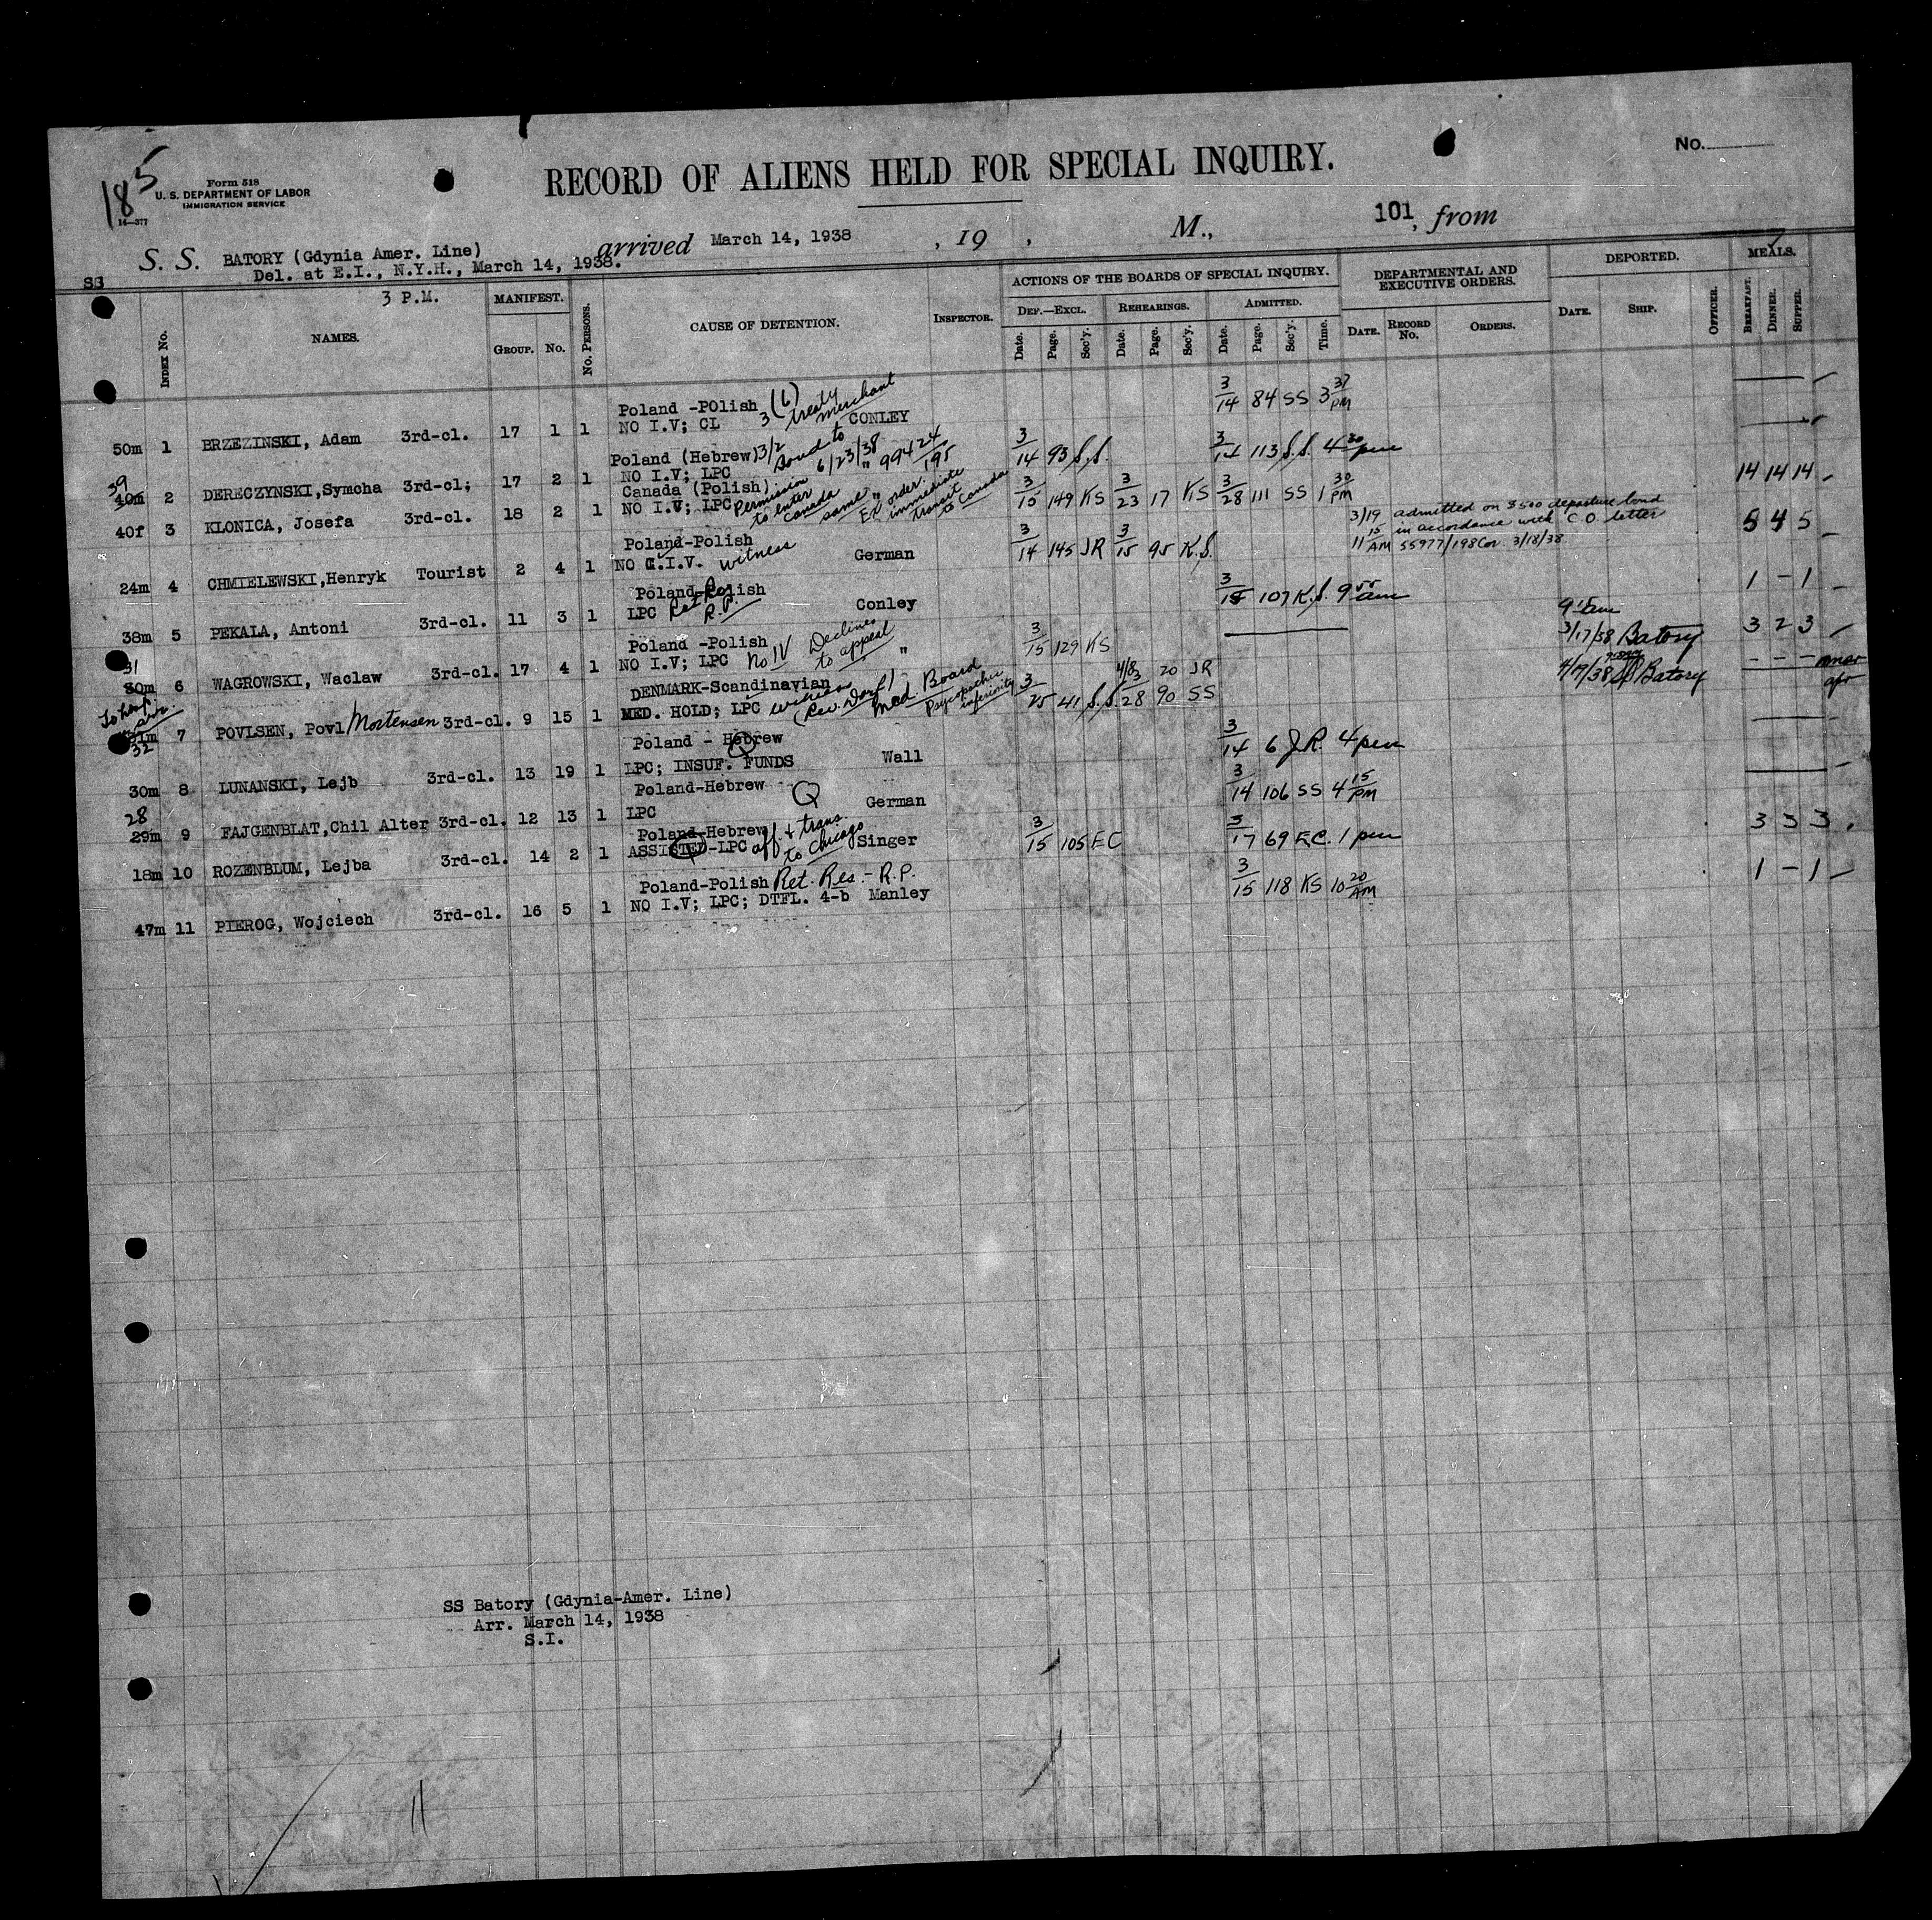 185
Form 518
U. S. DEPARTMENT OF LABOR
IMMIGRATION SERVICE
14—377
RECORD OF ALIENS HELD FOR SPECIAL INQUIRY.
No.
S. S. BATORY (Gdynia Amer. Line) arrived March 14, 1938 , 19 , M., 101, from
Del. at E.I., N.Y.H., March 14, 1938.
SS
3 P.M.
INDEX No. NAMES. MANIFEST. GROUP. No. No. PERSONS. CAUSE OF DETENTION. INSPECTOR. ACTIONS OF THE BOARDS OF SPECIAL INQUIRY. DEF.—EXCL. Date. Page. Sec'y. REHEARINGS. Date. Page. Sec'y. ADMITTED. Date. Page. Sec'y. Time. DEPARTMENTAL AND EXECUTIVE ORDERS. DATE. RECORD No. ORDERS. DEPORTED. DATE. SHIP. OFFICER. MEALS. BREAKFAST. DINNER. SUPPER.
Poland -POlish 3(6) treaty merchant 3/14 84 SS 3 37 PM
50m 1 BRZEZINSKI, Adam 3rd-cl. 17 1 1 NO I.V; CL CONLEY
Poland (Hebrew) 3/2 Bond to 6/23/38 " 994 24/195 3/14 93 S.S. 3/14 113 S.S. 4 30 pm
39
40m 2 DERECZYNSKI,Symcha 3rd-cl; 17 2 1 NO I.V; LPC
Canada (Polish) Permission to enter Canada same " EC order immediate transit to Canada 3/15 149 KS 3/23 17 KS 3/28 111 SS 1 30 PM 14 14 14
40f 3 KLONICA, Josefa 3rd-cl. 18 2 1 NO I.V; LPC
Poland-Polish 3/14 145 JR 3/15 95 K.S. 3/19 11 15 AM admitted on $500 departure bond in accordance with C.O. letter 55977/198 Con. 3/18/38 5 4 5
24m 4 CHMIELEWSKI,Henryk Tourist 2 4 1 NO I.V. witness German
Poland-Polish 3/15 107 K.S. 9 55 am 1 - 1
38m 5 PEKALA, Antoni 3rd-cl. 11 3 1 LPC Ret Res R.P. Conley
Poland -Polish Declines to appeal 3/15 129 KS 9 15 am 3/17/38 Batory 3 2 3
31
30m 6 WAGROWSKI, Waclaw 3rd-cl. 17 4 1 NO I.V; LPC No IV "
DENMARK-Scandinavian (Rev. Dorf) Med. Board Psycopathic inferiority 3/25 41 S.S. 4/8 20 JR 3/28 90 SS 4/9/38 Batory - - -
To hosp.
31m 7 POVLSEN, Povl Mortensen 3rd-cl. 9 15 1 MED. HOLD; LPC witness
32
Poland - Hebrew 3/14 6 J.R. 4 pm
30m 8 LUNANSKI, Lejb 3rd-cl. 13 19 1 LPC; INSUF. FUNDS Wall
Poland-Hebrew Q 3/14 106 SS 4 15 PM
28
29m 9 FAJGENBLAT,Chil Alter 3rd-cl. 12 13 1 LPC German
Poland-Hebrew aff + trans. to Chicago 3/15 105 EC 3/17 69 E.C. 1 pm 3 3 3
18m 10 ROZENBLUM, Lejba 3rd-cl. 14 2 1 ASSISTED-LPC Singer
Poland-Polish Ret. Res. - R.P. 3/15 118 KS 10 20 AM 1 - 1
47m 11 PIEROG, Wojciech 3rd-cl. 16 5 1 NO I.V; LPC; DTFL. 4-b Manley
SS Batory (Gdynia-Amer. Line)
Arr. March 14, 1938
S.I.
11